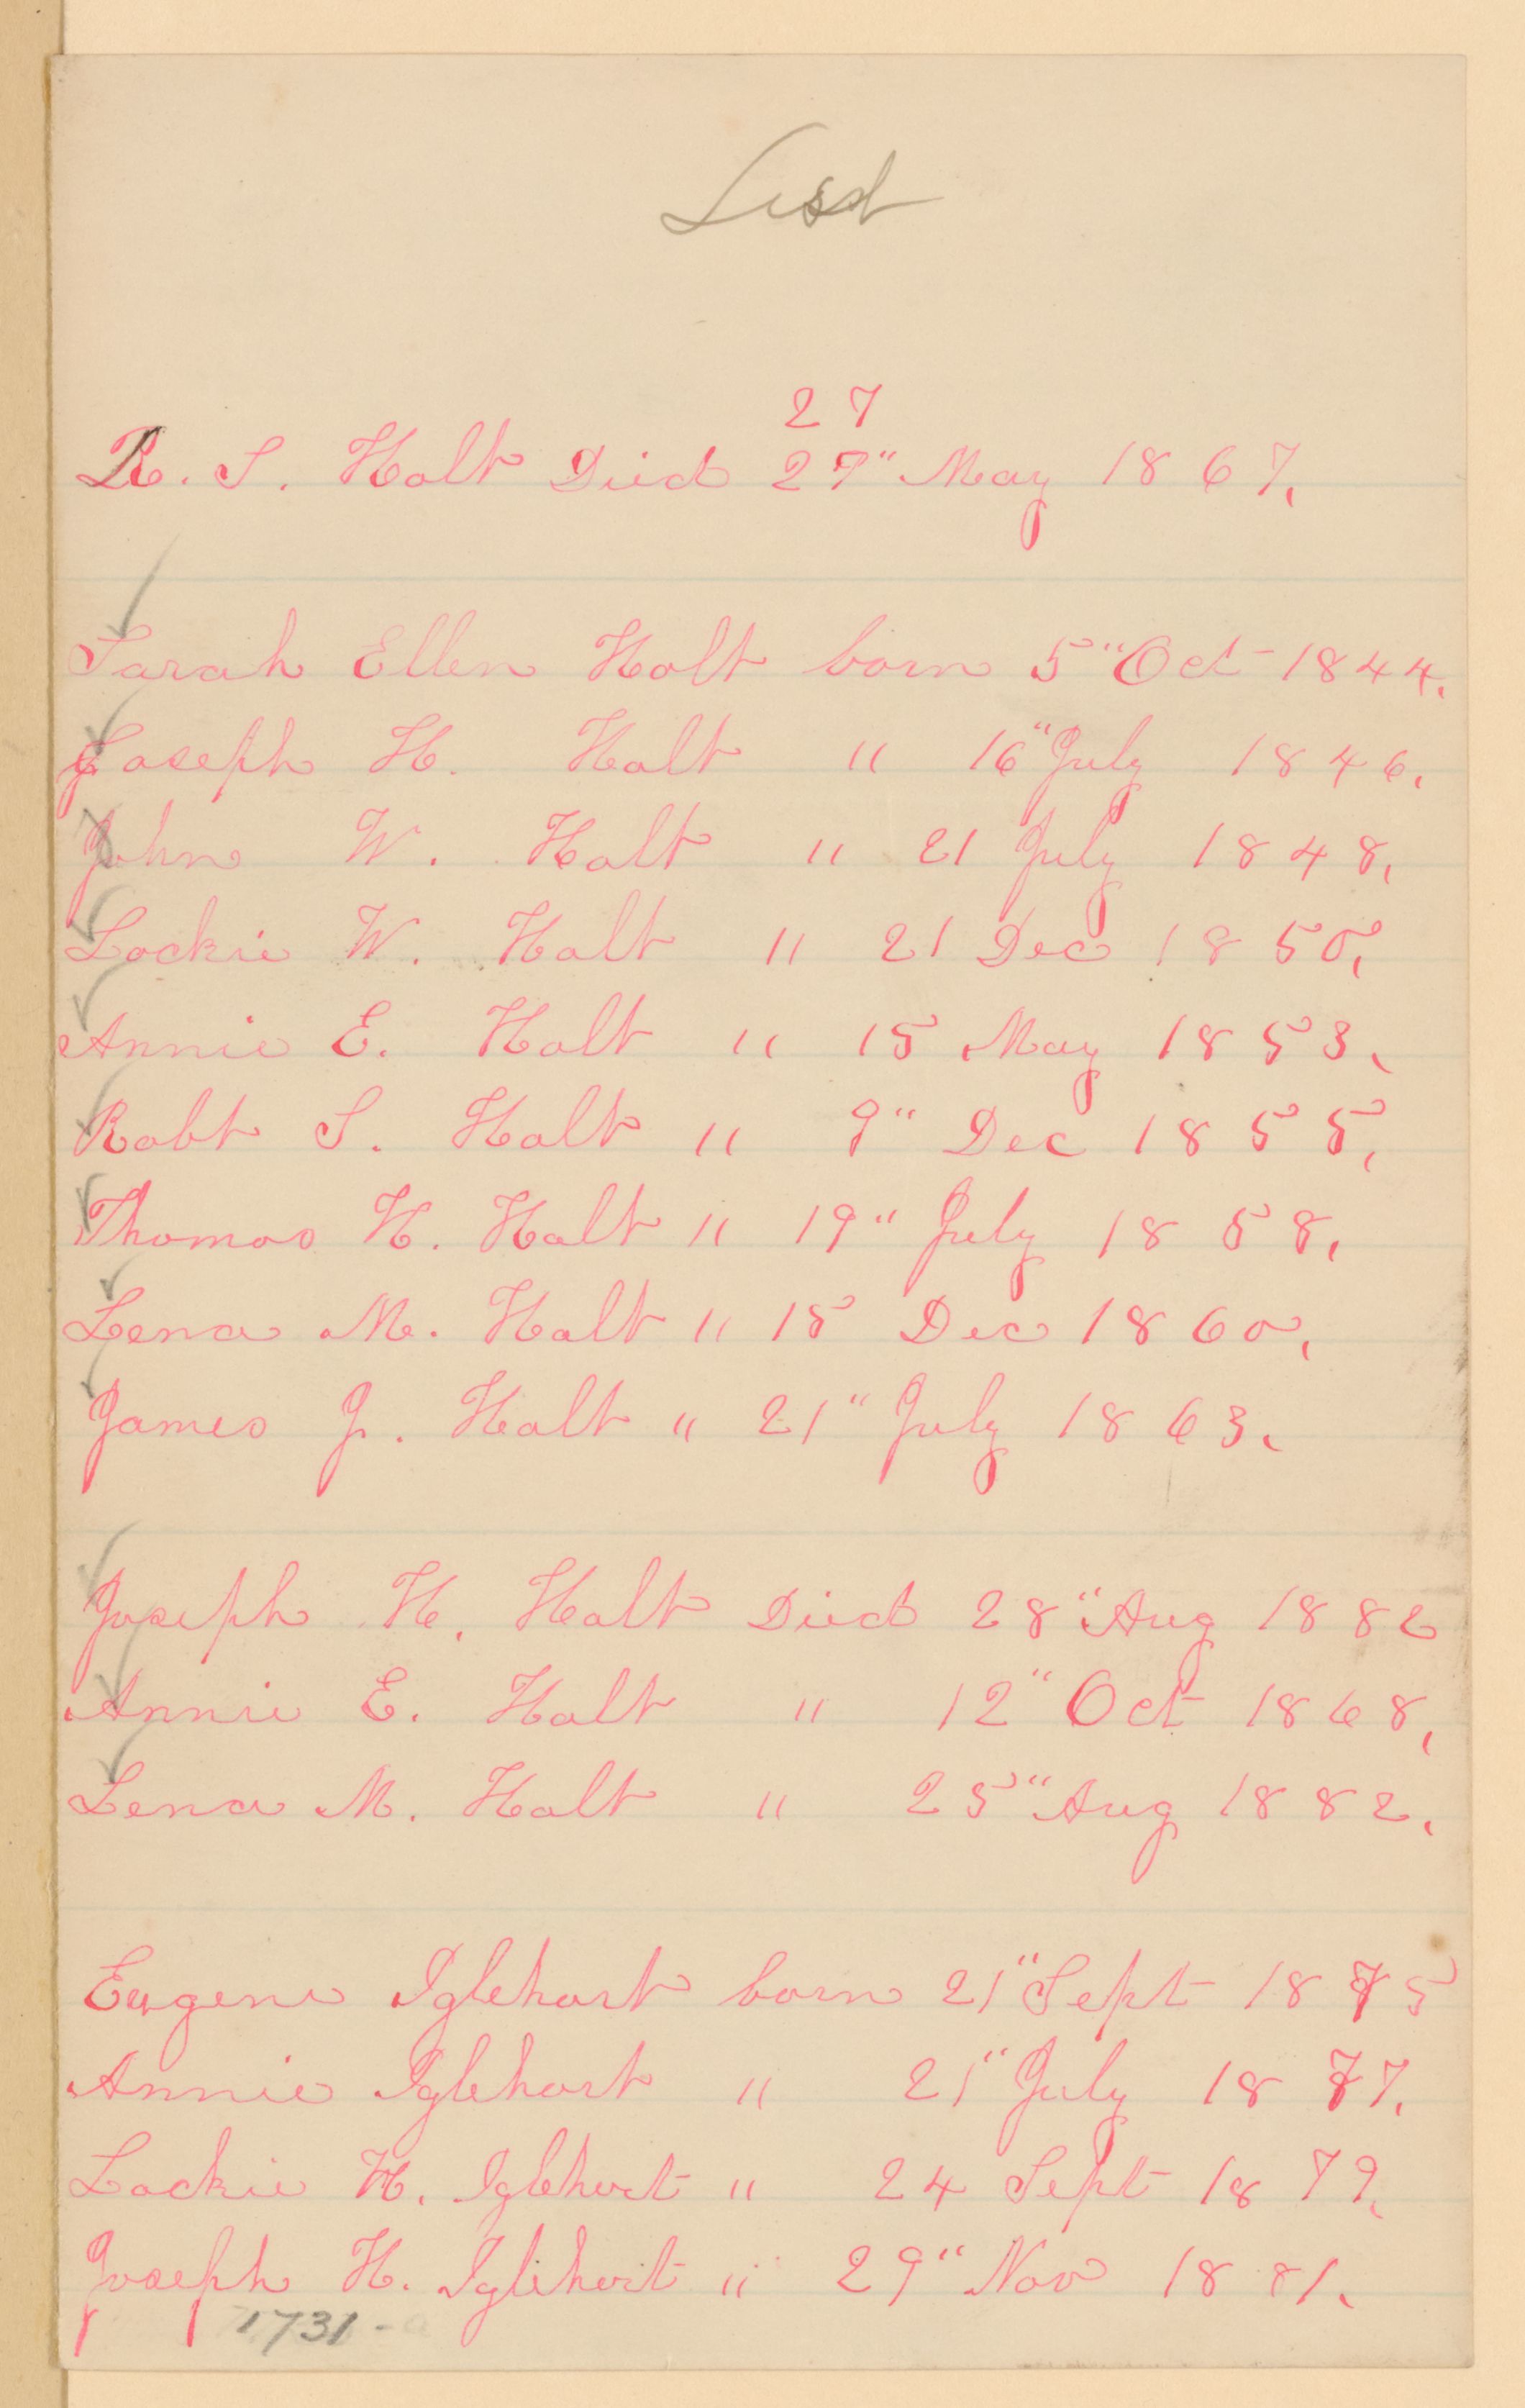 List
27
R. S. Holt Died 27" May 1867.
Sarah Ellen Holt born 5" Oct 1844.
Joseph H. Holt " 16" July 1846.
John W. Holt " 21 July 1848.
Lockie W. Holt " 21 Dec 1850.
Annie E. Holt " 15 May 1853.
Robt S. Holt " 9" Dec 1855.
Thomas H. Holt " 19" July 1858.
Lena M. Holt " 15 Dec 1860.
James J. Holt " 21" July 1863.
Joseph H. Holt Died 28" Aug 1882
Annie E. Holt " 12" Oct 1868.
Lena M. Holt " 25" Aug 1882.
Eugene Iglehart born 21" Sept 1875
Annie Iglehart " 21" July 1877.
Lockie H. Iglehart " 24 Sept 1879.
Joseph H. Iglehart " 29" Nov 1881.
1731